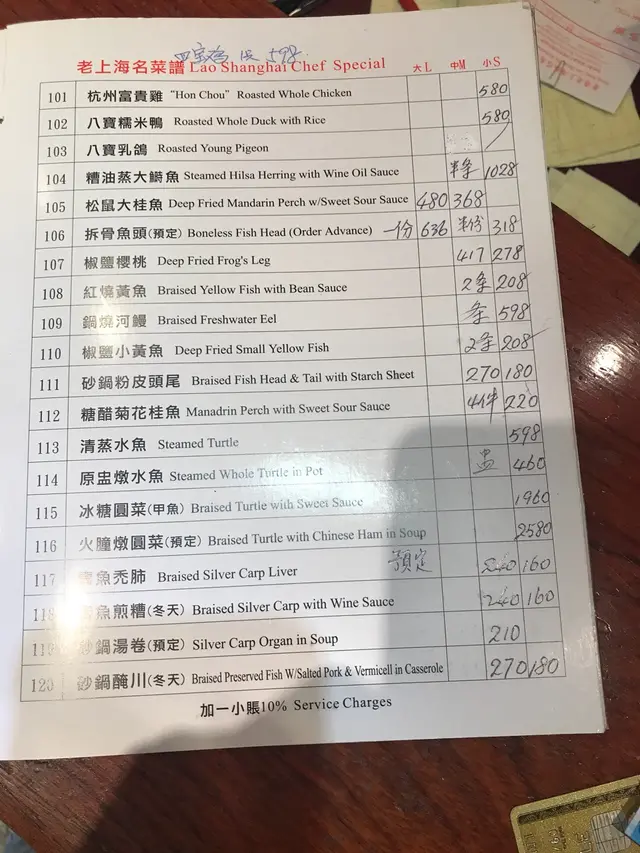 四寶 598
老上海名菜譜 Lao Shanghai Chef Special 大L 中M 小S
101 杭州富貴雞 "Hon Chou" Roasted Whole Chicken 580
102 八寶糯米鴨 Roasted Whole Duck with Rice 580
103 八寶乳鴿 Roasted Young Pigeon
104 糟油蒸大鰣魚 Steamed Hilsa Herring with Wine Oil Sauce 半条 1028
105 松鼠大桂魚 Deep Fried Mandarin Perch w/Sweet Sour Sauce 480 368
106 拆骨魚頭(預定) Boneless Fish Head (Order Advance) 一份 636 半份 318
107 椒鹽櫻桃 Deep Fried Frog's Leg 417 278
108 紅燒黃魚 Braised Yellow Fish with Bean Sauce 2条 208
109 鍋燒河鰻 Braised Freshwater Eel 条 598
110 椒鹽小黃魚 Deep Fried Small Yellow Fish 2条 208
111 砂鍋粉皮頭尾 Braised Fish Head & Tail with Starch Sheet 270 180
112 糖醋菊花桂魚 Manadrin Perch with Sweet Sour Sauce 4件 220
113 清蒸水魚 Steamed Turtle 598
114 原盅燉水魚 Steamed Whole Turtle in Pot 盅 460
115 冰糖圓菜(甲魚) Braised Turtle with Sweet Sauce 1960
116 火朣燉圓菜(預定) Braised Turtle with Chinese Ham in Soup 2580
117 魚禿肺 Braised Silver Carp Liver 預定 240 160
118 魚煎糟(冬天) Braised Silver Carp with Wine Sauce 240 160
119 砂鍋湯卷(預定) Silver Carp Organ in Soup 210
120 砂鍋醃川(冬天) Braised Preserved Fish W/Salted Pork & Vermicell in Casserole 270 180
加一小賬10% Service Charges